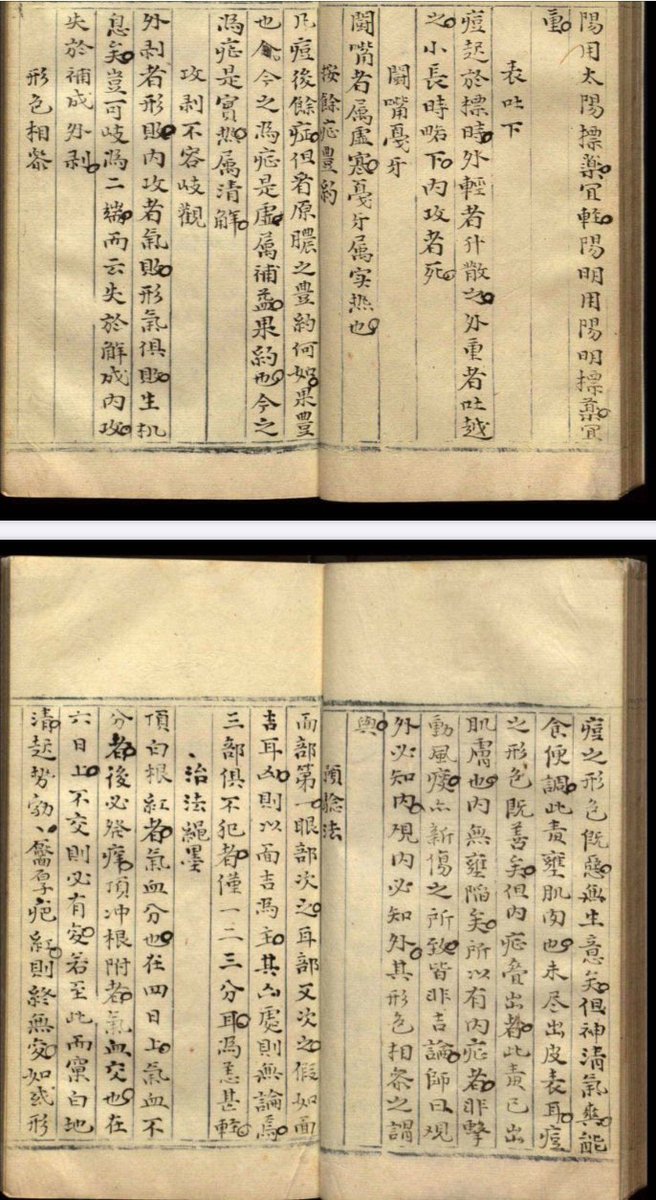 陽用太陽摽藥冝輕陽明用陽明摽藥冝
重
表吐下
痘起於摽時外輕者升散之外重者吐越
之小長時嗨下内攻者死
鬪嘴戞牙
鬪嘴者属虚寒戞牙属实热也
按餘症豐約
凡痘後餘症但看原膿之豊約何如果豊
也今之爲症是虚属補益果約也今之
爲症是實热属清解
攻剥不容歧觀
外剥者形敗内攻者氣敗形氣俱敗生机
息矣豈可歧爲二端而云失於解成内攻
失於補成外剥
形色相叅
痘之形色既惡無生意矣但神清氣爽能
食便調此責壅肌肉也未尽出皮表耳痘
之形色既善矣但内症叠出者此責已出
肌膚也内無壅陷矣所以有内症者非擊
動風痰亦新傷之所致皆非吉論師曰观
外必知内观内必知外其形色相叅之謂
與
預驗法
面部第一眼部次之耳部又次之假如面
吉耳凶則以面吉爲主其凶處則無論焉
三部俱不犯者僅一二三分耳爲恙甚輕
治法繩墨
頂白根紅者氣血分也在四日上氣血不
分者後必發痒頂冲根附者氣血交也在
六日上不交則必有变若至此而窠白地
清起势勃勃臠孚疤紅則終無变如或形